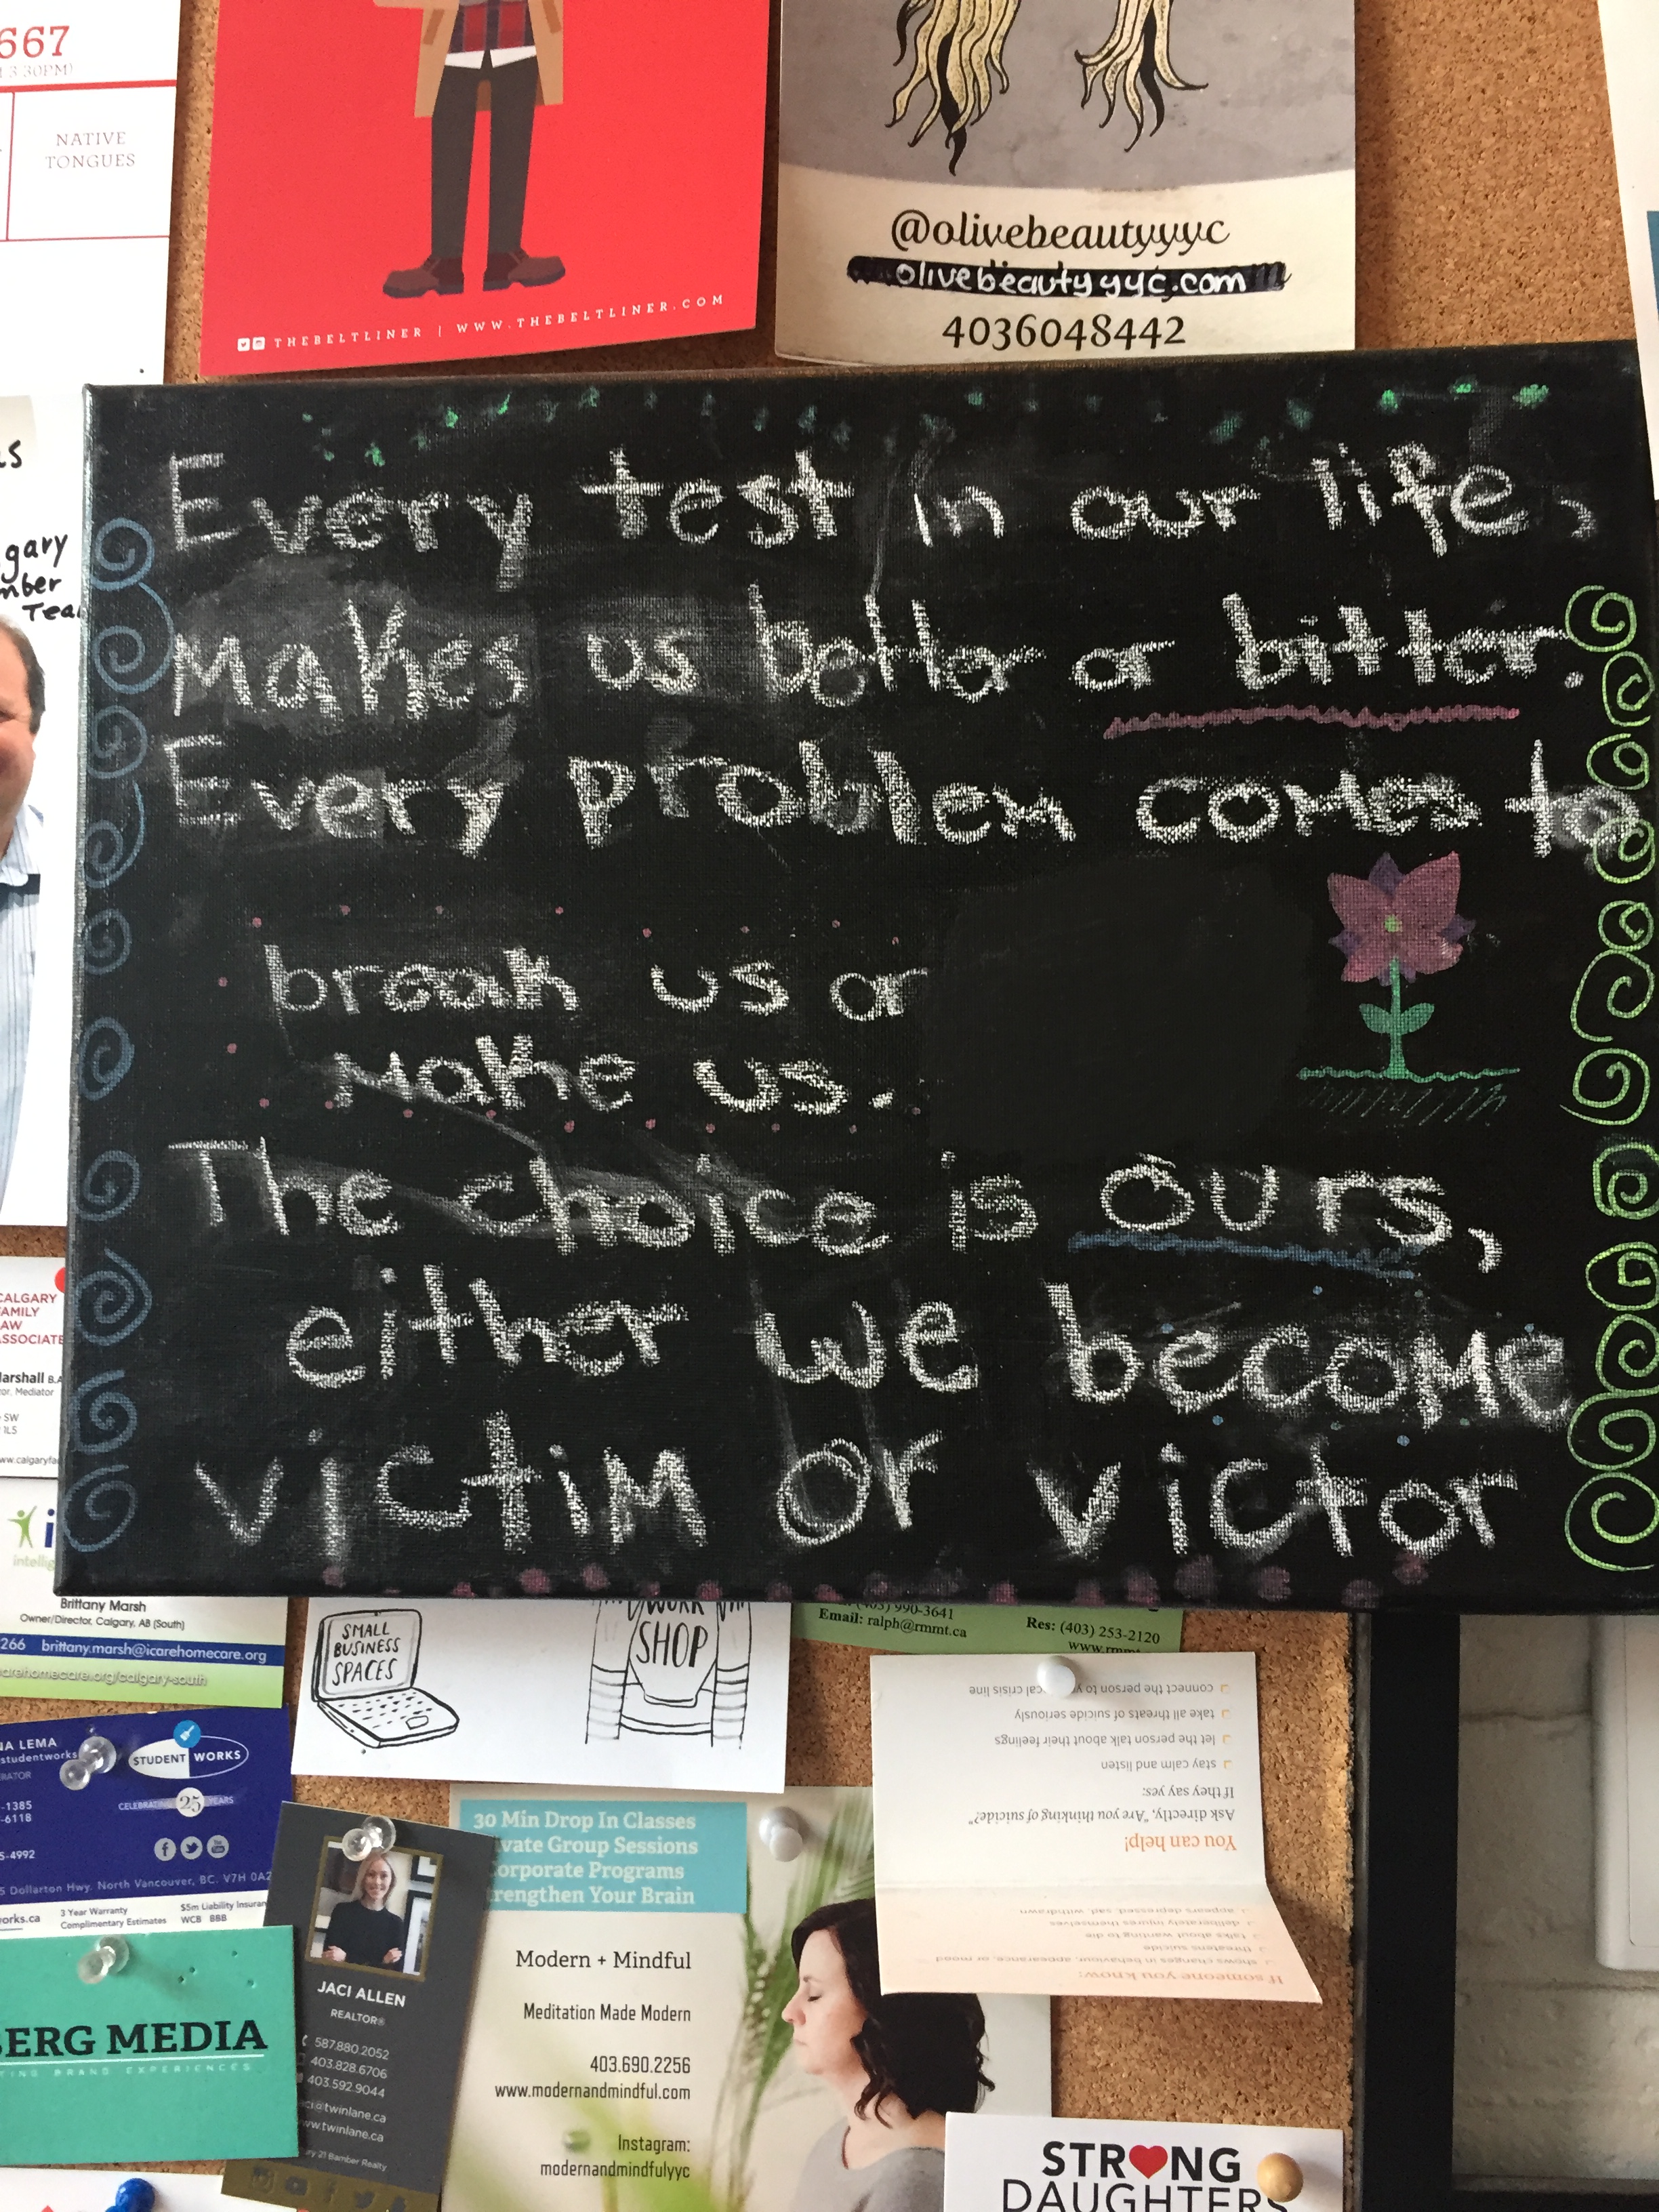 667
3:30PM)
NATIVE
TONGUES
THEBELTLINER | WWW.THEBELTLINER.COM
@olivebeautyyyc
olivebeautyyyc.com
4036048442
gary
Every test in our life,
makes us better or bitter.
Every problem comes to
break us or
make us.
The choice is ours,
either we become
victim or victor
CALGARY
FAMILY
LAW
ASSOCIATE
Marshall B.A
Mediator
SW
1L5
www.calgaryfa
Brittany Marsh
Owner/Director, Calgary, AB (South)
266 brittany.marsh@icarehomecare.org
arehomecare.org/calgary-south
SMALL
BUSINESS
SPACES
WORK
SHOP
(403) 990-3641
Email: ralph@rmmt.ca
Res: (403) 253-2120
NA LEMA
studentworks
STUDENT WORKS
CELEBRATING 25 YEARS
-1385
-6118
5-4992
5 Dollarton Hwy. North Vancouver, BC. V7H 0A2
orks.ca
3 Year Warranty
Complimentary Estimates
$5m Liability Insuran
WCB BBB
If someone you know:
shows changes in behaviour, appearance, or mood
threatens suicide
talks about wanting to die
deliberately injures themselves
appears depressed, sad, withdrawn
You can help!
Ask directly, "Are you thinking of suicide?"
If they say yes:
stay calm and listen
let the person talk about their feelings
take all threats of suicide seriously
connect the person to crisis line
BERG MEDIA
BRAND EXPERIENCES
JACI ALLEN
REALTOR®
587.880.2052
403.828.6706
403.592.9044
ci@twinlane.ca
ww.twinlane.ca
ry 21 Bamber Realty
30 Min Drop In Classes
vate Group Sessions
orporate Programs
rengthen Your Brain
Modern + Mindful
Meditation Made Modern
403.690.2256
www.modernandmindful.com
Instagram:
modernandmindfulyyc
STRONG
DAUGHTERS